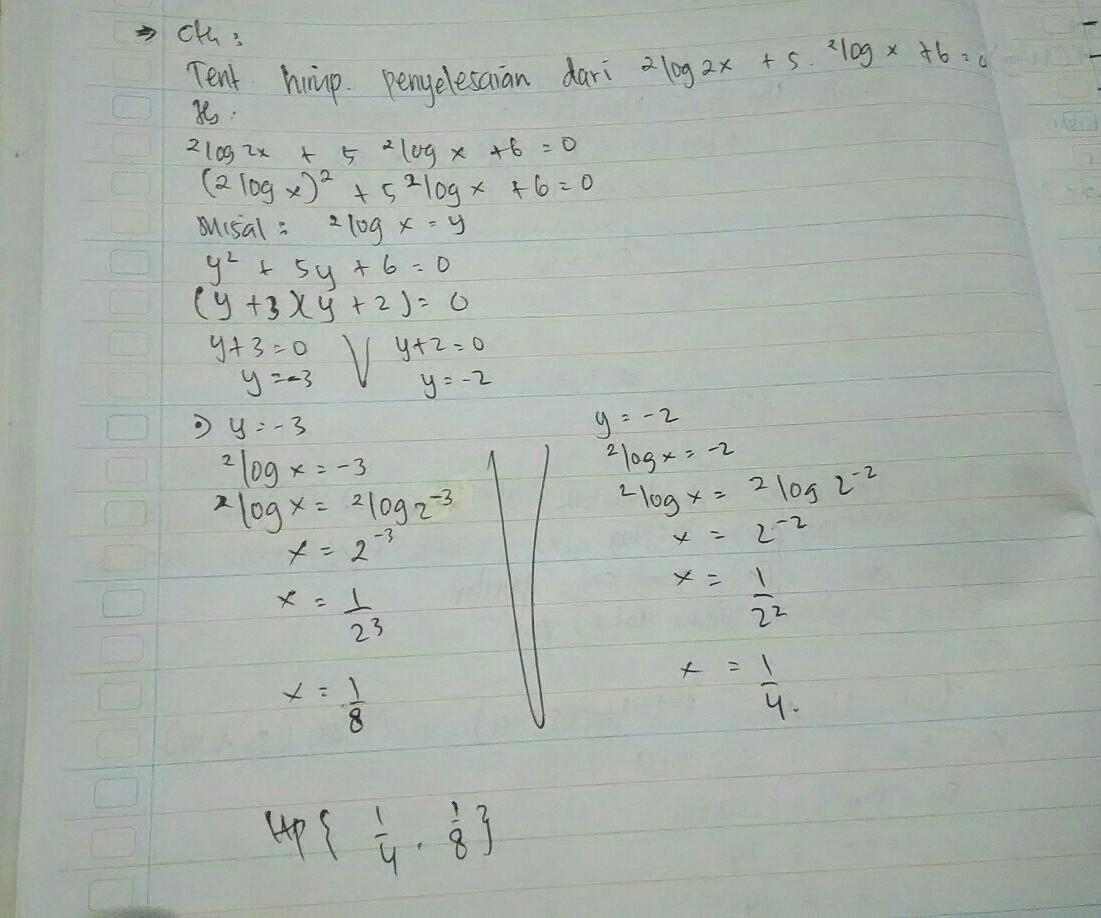 → Cth :
Tent. himp. penyelesaian dari ²log 2x + 5. ²log x + 6 = 0
²log 2x + 5 ²log x + 6 = 0
(2 log x)² + 5 ²log x + 6 = 0
Misal : ²log x = y
y² + 5y + 6 = 0
(y + 3)(y + 2) = 0
y + 3 = 0 V y + 2 = 0
y = -3 y = -2
y = -3 V y = -2
²log x = -3 ²log x = -2
²log x = ²log 2⁻³ ²log x = ²log 2⁻²
x = 2⁻³ x = 2⁻²
x = 1/2³ x = 1/2²
x = 1/8 x = 1/4.
Hp { 1/4 . 1/8 }